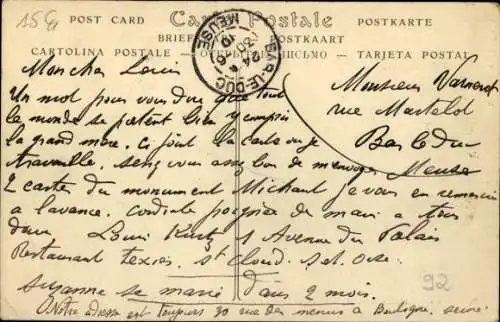 15 e
POST CARD Carte Postale POSTKARTE
POSTKAART
CARTOLINA POSTALE TARJETA POSTAL
BAR-LE-DUC
MEUSE
Mon cher Louis
Un mot pour vous dire que tout
le monde se portent bien y compris
la grand mère. Ci joint la carte où je
travaille. Serez vous assez bon de m'envoyer
2 cartes du monument Michaut je vous en remercie
a l'avance. Cordiale poignée de main a tous
deux Louis Kurtz 1 Avenue du Palais
Restaurant St Cloud. S et Oise.
Suzanne se marie dans 2 mois.
Notre adresse est toujours 30 rue des menus à Boulogne. Seine.
Monsieur
rue
Bar le Duc
Meuse
92